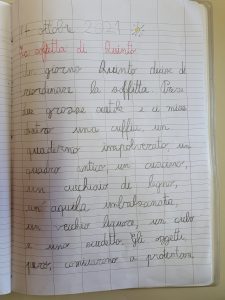 ottobre 2021
La soffitta di Quinto
Un giorno Quinto decise di
riordinare la soffitta. Prese
due grosse scatole e ci mise
dentro una cuffia, un
quaderno impolverato, un
quadro antico, un cuscino,
un cucchiaio di legno,
un'aquila imbalsamata,
un vecchio liquore, un cubo
e uno scudetto. Gli oggetti,
però, cominciarono a protestare